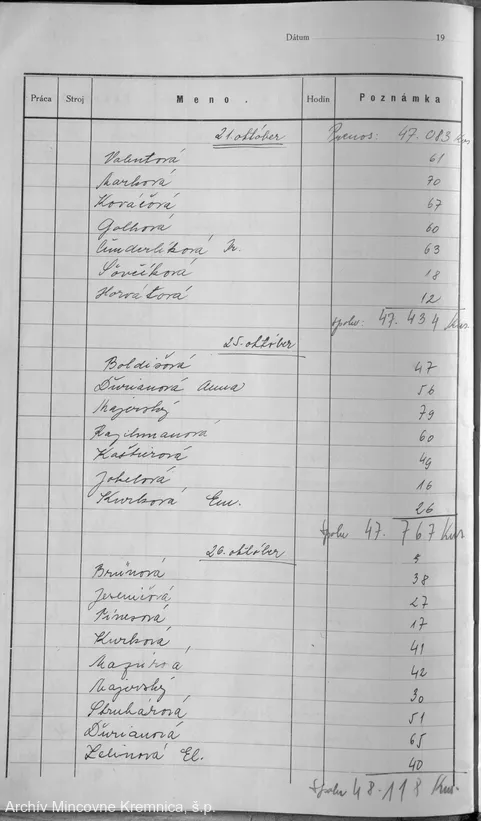 Dátum 19
Práca Stroj Meno. Hodin Poznámka
21. október Prenos: 47.083 Kus
Valentová 61
Marková 70
Kováčová 67
Golhová 60
Čunderlíková M. 63
Ševčíková 18
Horvátová 12
Spolu: 47.434 Kus
25. október
Boldišová 47
Ďurianová Anna 56
Majerský 79
60
Kašturová 49
Jobelová 16
Kurková Em. 26
Spolu 47.767 Kus
26. október 5
Brúnová 38
Jeseničová 27
Pinesová 17
Kurková 41
Mazúrová 42
Majerský 30
Struhárová 51
Ďurianová 65
Zelinová El. 40
Spolu 48.118 Kus.
Archív Mincovne Kremnica, š.p.